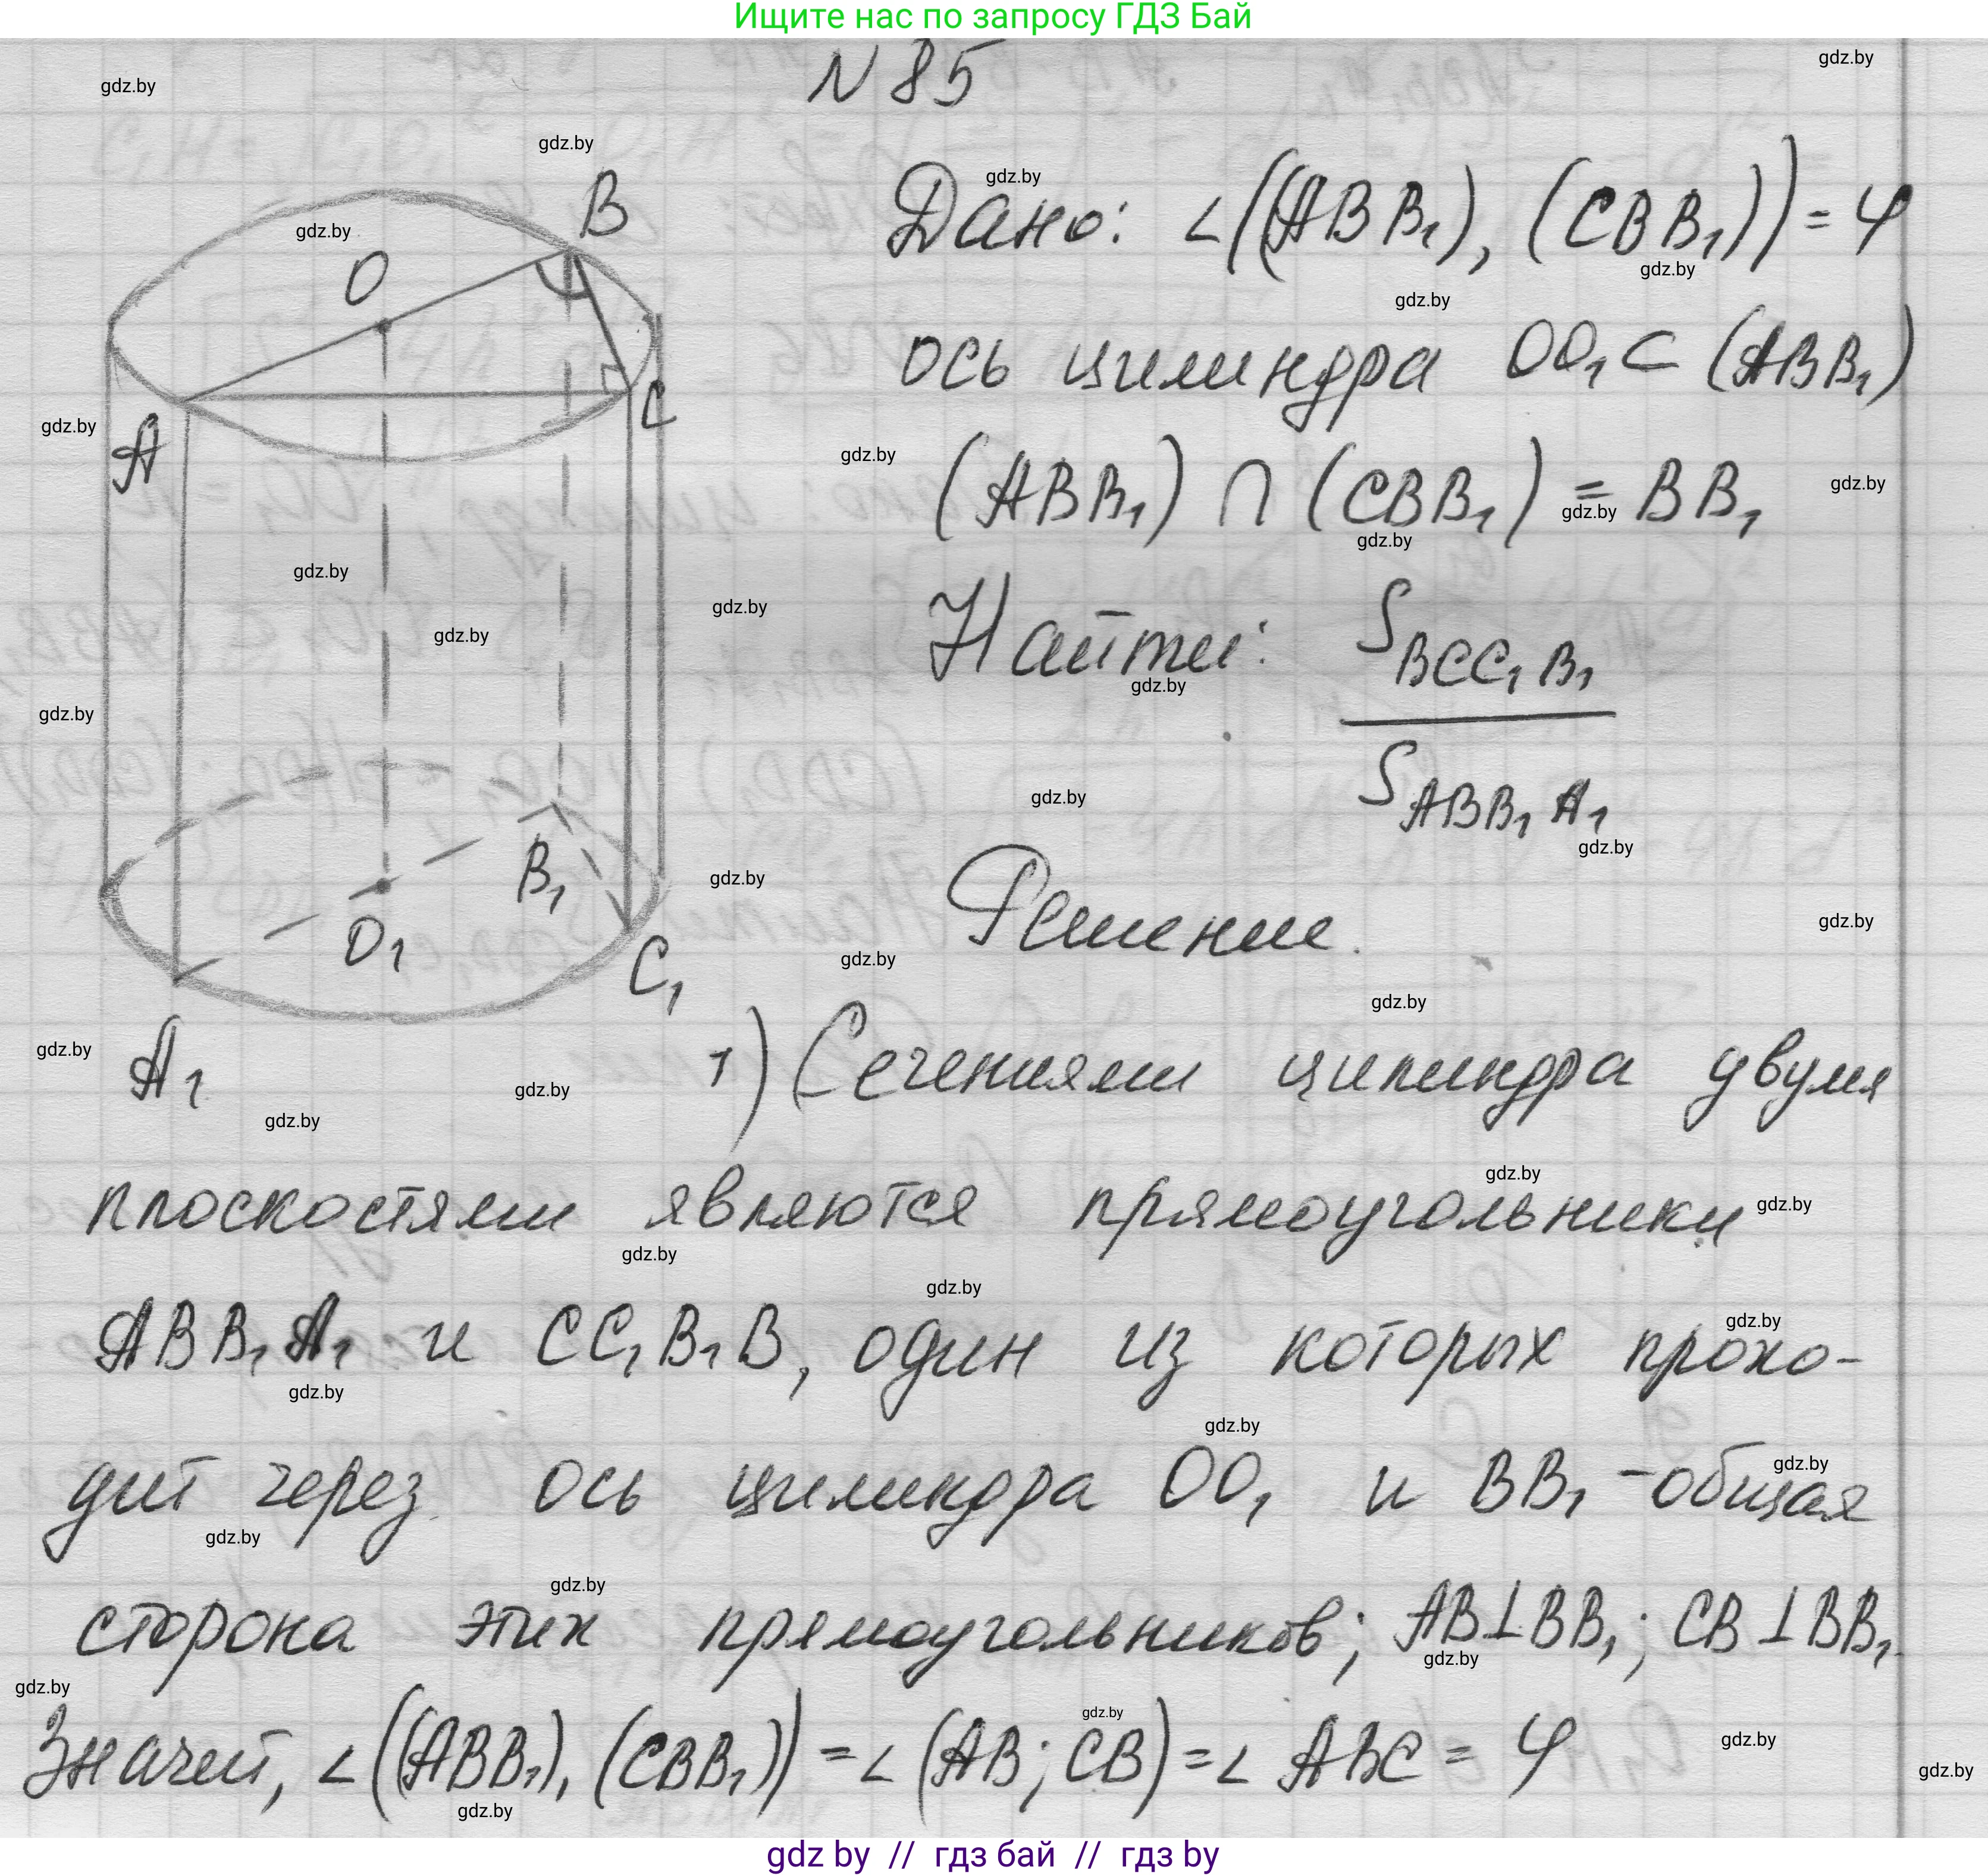 Ищите нас по запросу ГДЗ Бай
N 85
Дано: ∠((ABB₁), (CBB₁)) = φ
ось цилиндра OO₁ ⊂ (ABB₁)
(ABB₁) ∩ (CBB₁) = BB₁
Найти: S BCC₁B₁
S ABB₁A₁
Решение.
B
O
A
C
B₁
O₁
C₁
A₁
1) Сечениями цилиндра двумя
плоскостями являются прямоугольники
ABB₁A₁ и CC₁B₁B, один из которых прохо-
дит через ось цилиндра OO₁ и BB₁ - общая
сторона этих прямоугольников; AB⊥BB₁; CB⊥BB₁.
Значит, ∠((ABB₁), (CBB₁)) = ∠(AB; CB) = ∠ABC = φ
gdz by // гдз бай // гдз by